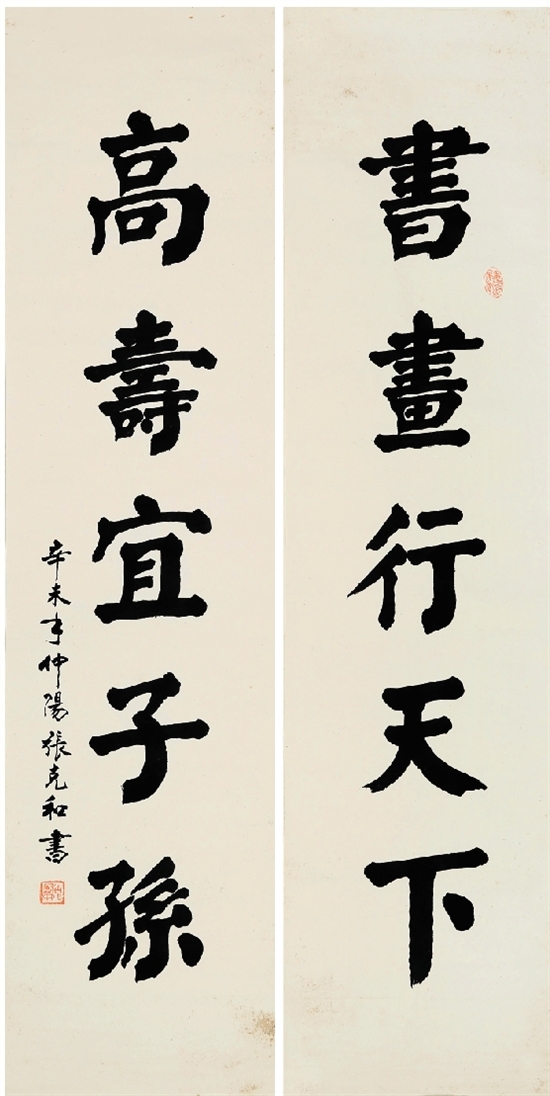 書畫行天下
高壽宜子孫
辛未年仲陽張克和書